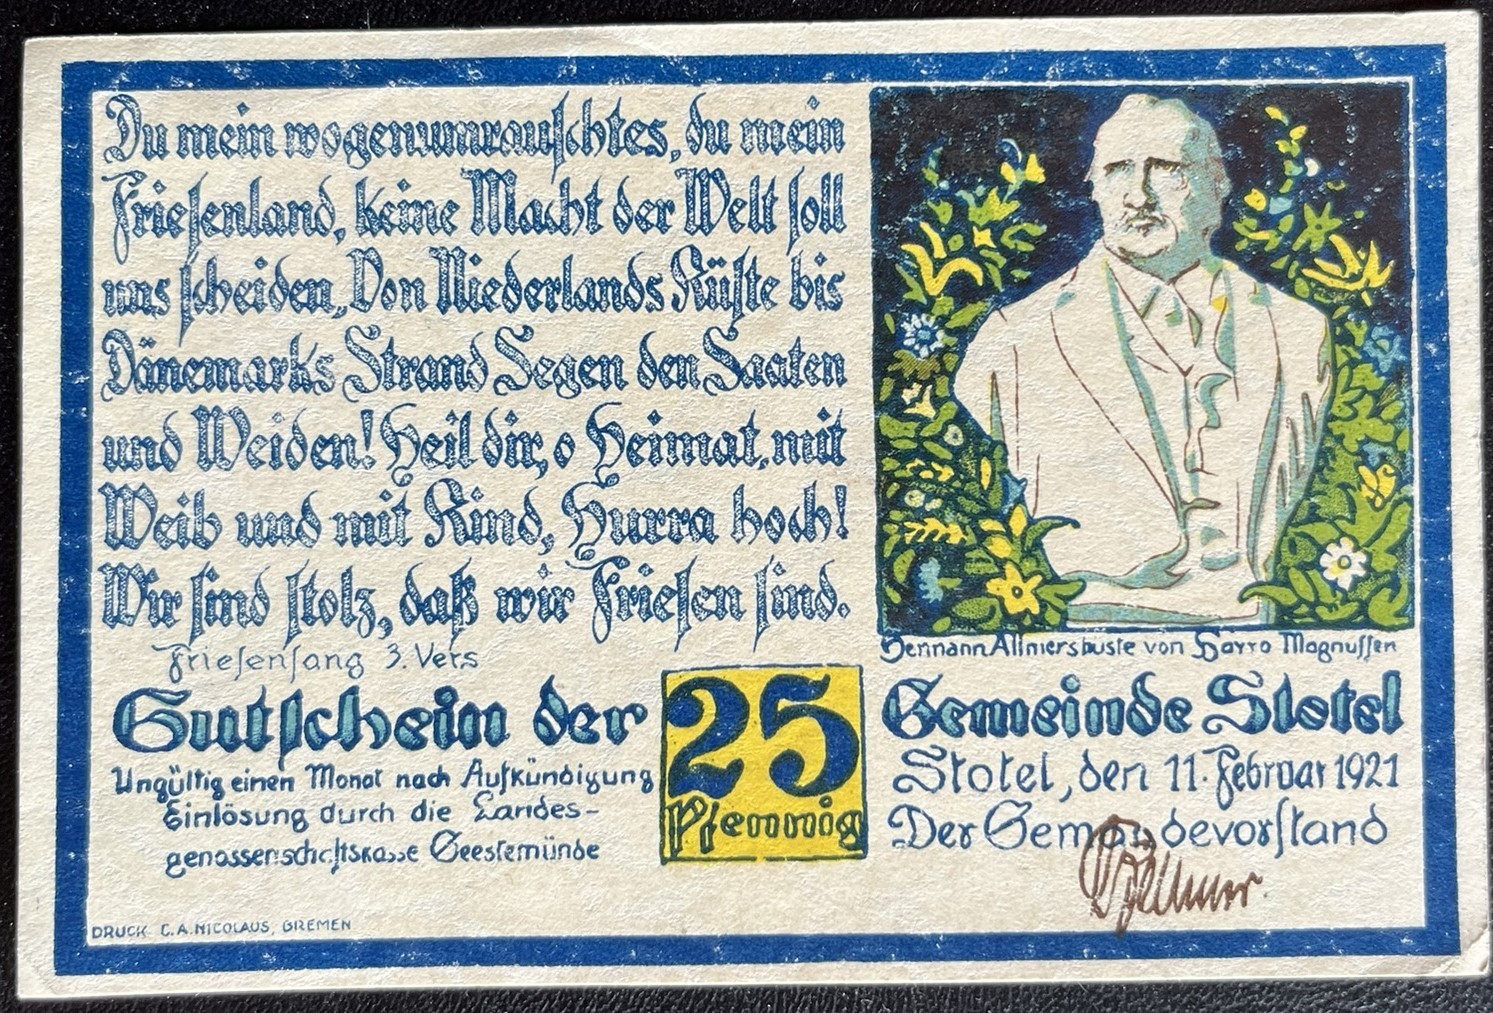 Du mein wogenumrauschtes, du mein
Friesenland, keine Macht der Welt soll
uns scheiden, Von Niederlands Küste bis
Dänemarks Strand Segen den Saaten
und Weiden! Heil dir, o Heimat, mit
Weib und mit Kind, Hurra hoch!
Wir sind stolz, daß wir Friesen sind.
Friesensang 3. Vers
Hermann Allmersbüste von Harro Magnussen
Gutschein der
25
Pfennig
Gemeinde Stotel
Ungültig einen Monat nach Aufkündigung
Einlösung durch die Landes-
genossenschaftskasse Geestemünde
Stotel, den 11. Februar 1921
Der Gemeindevorstand
DRUCK C.A.NICOLAUS, BREMEN